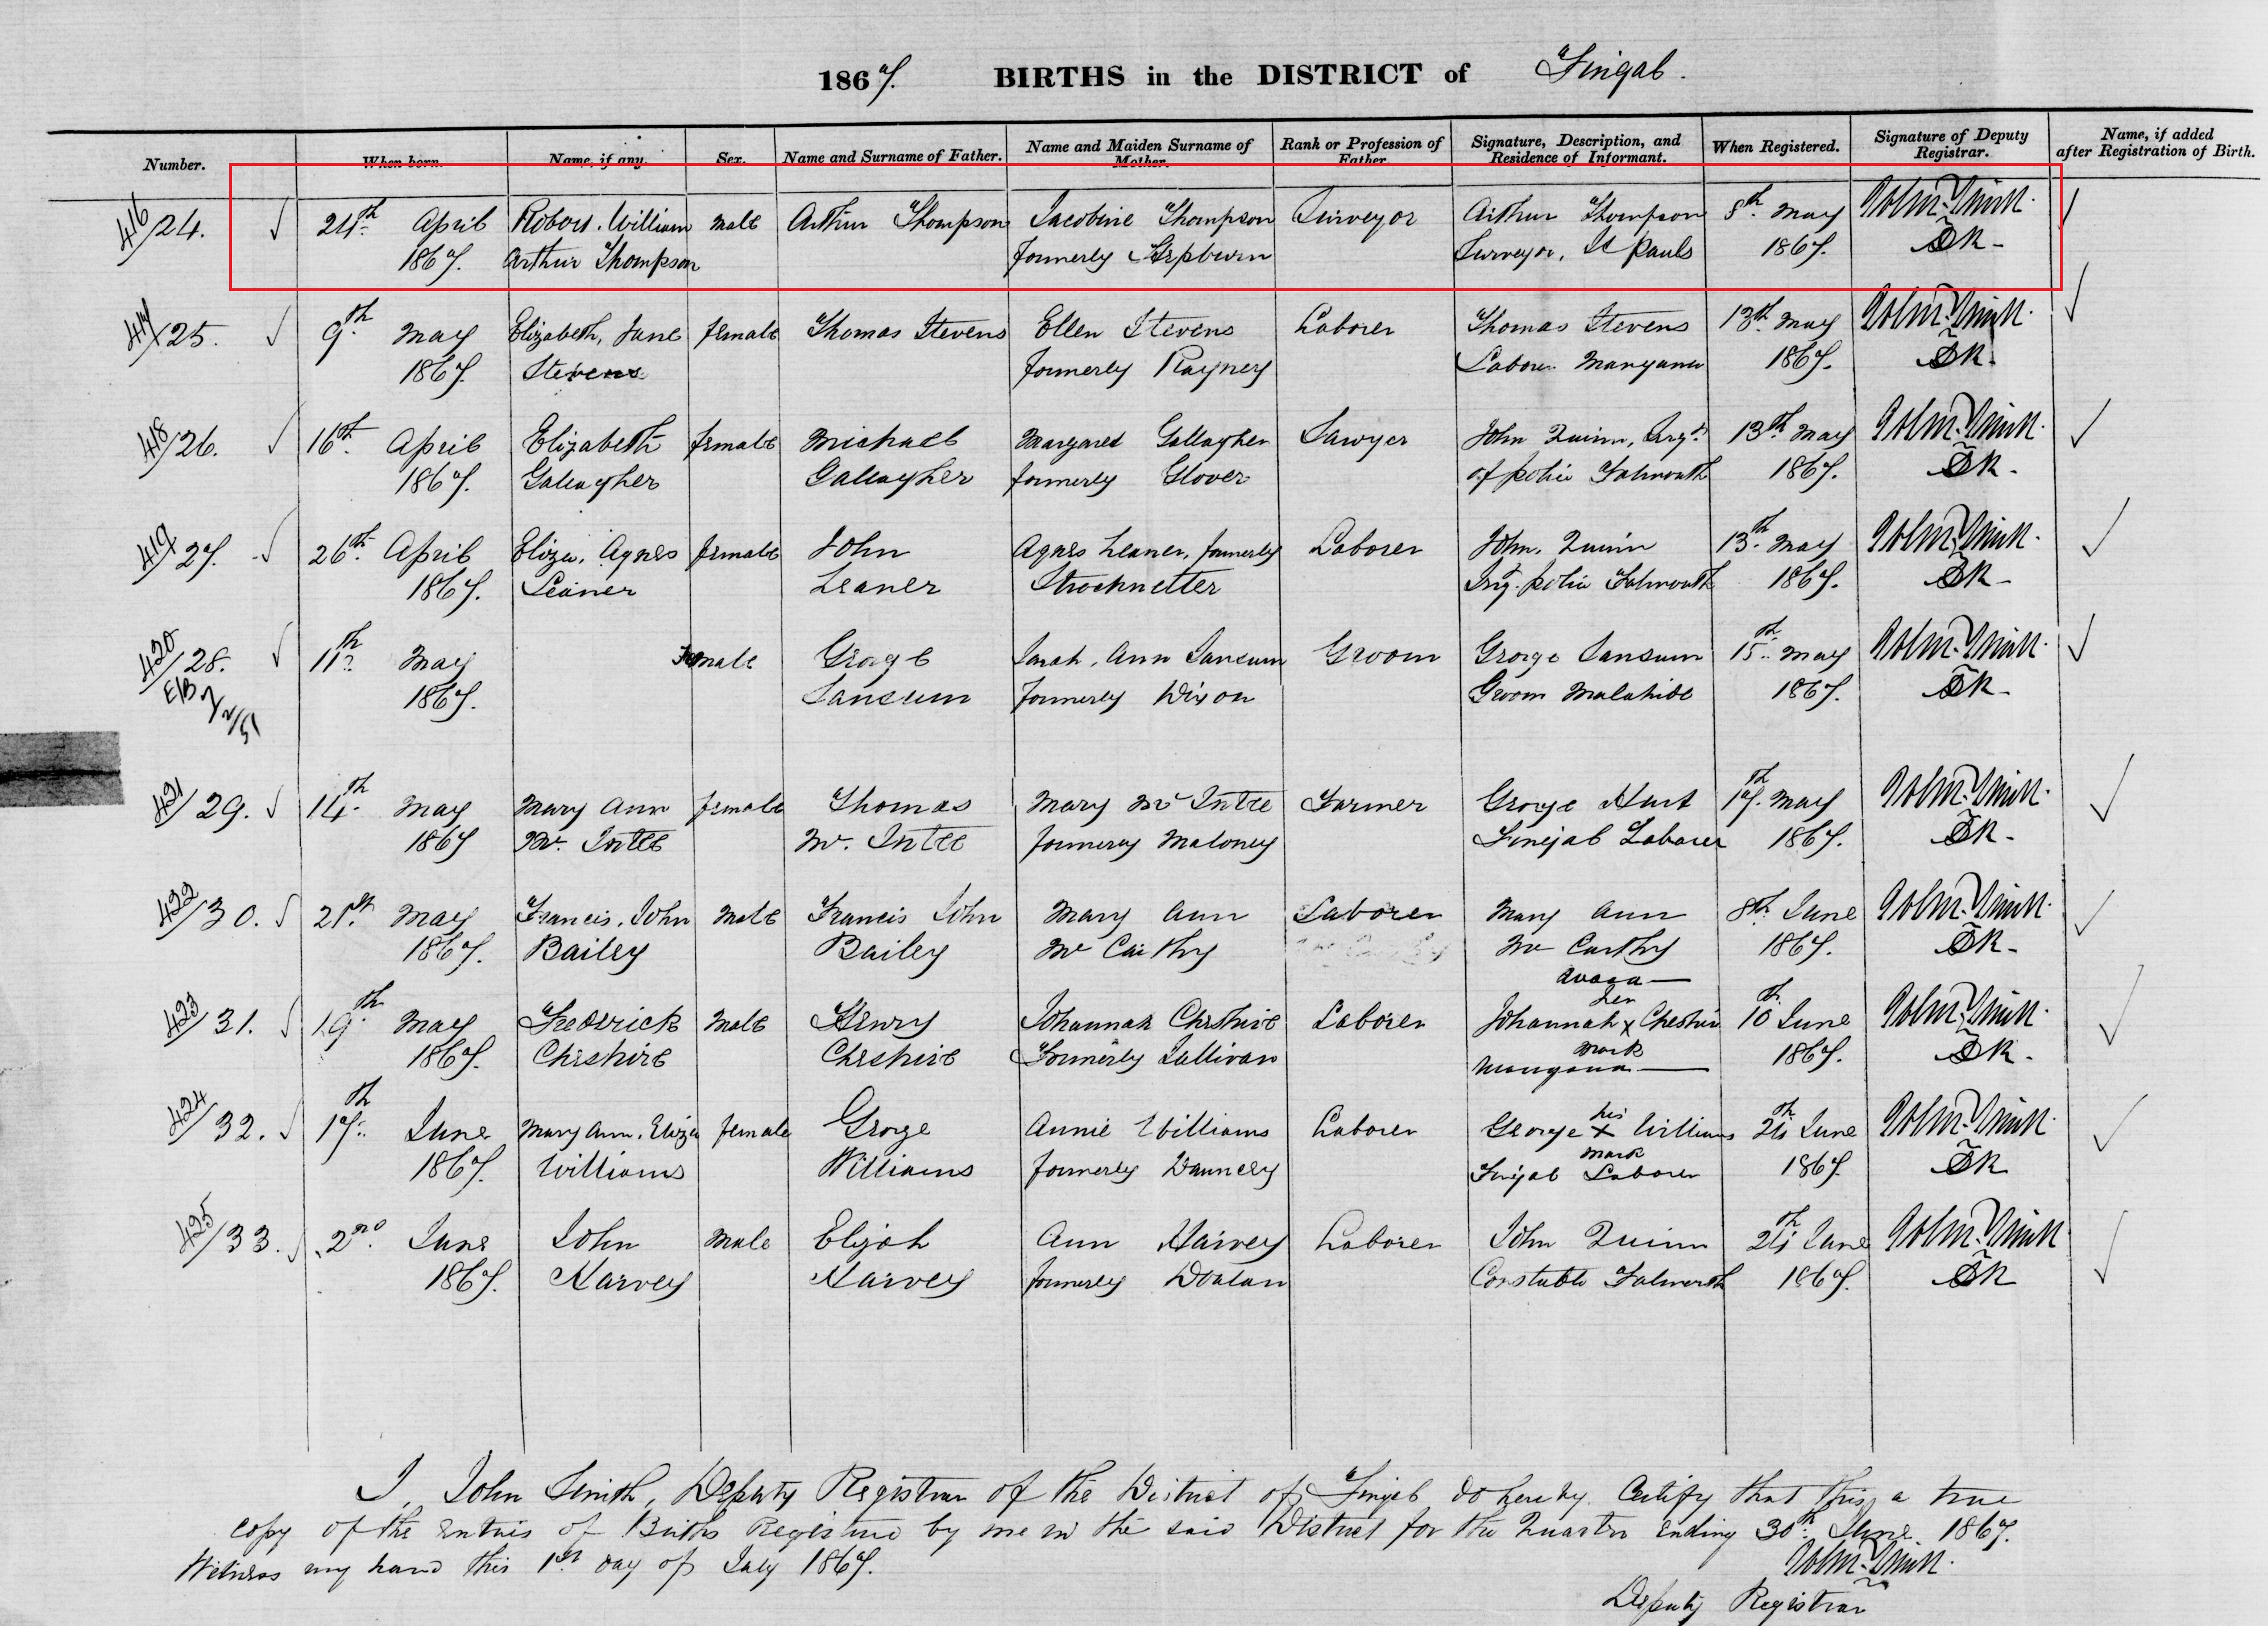 1867. BIRTHS in the DISTRICT of Fingal.
Number. When born. Name, if any. Sex. Name and Surname of Father. Name and Maiden Surname of Mother. Rank or Profession of Father. Signature, Description, and Residence of Informant. When Registered. Signature of Deputy Registrar. Name, if added after Registration of Birth.
416/24. 24th April Robert. William male Arthur Thompson Jacobine Thompson Surveyor Arthur Thompson 8th May John Smith
1867. Arthur Thompson formerly Hepburn Surveyor, St Pauls 1867. DR-
417/25. 9th May Elizabeth, Jane female Thomas Stevens Ellen Stevens Laborer Thomas Stevens 13th May John Smith
1867. Stevens formerly Rayney Laborer Mangana 1867. DR.
418/26. 16th April Elizabeth female Michael Margaret Gallagher Sawyer John Quinn, 13th May John Smith
1867. Gallagher Gallagher formerly Glover of police Falmouth 1867. DR-
419/27. 26th April Eliza, Agnes female John Agnes Leaner, formerly Laborer John. Quinn 13th May John Smith
1867. Leaner Leaner police Falmouth 1867. DR-
420/28. 11th May Female George Sarah, Ann Sansum Groom George Sansum 15th May John Smith
1867. Sansum formerly Dixon Groom Malahide 1867. DR-
421/29. 14th May Mary Ann female Thomas Mary Mc Intee Farmer George Hart 17th May John Smith
1867 Mc. Intee Mc. Intee formerly Maloney Fingal Laborer 1867. DR-
422/30. 21st May Francis, John Male Francis John Mary Ann Laborer Mary Ann 8th June John Smith
1867. Bailey Bailey Mc Carthy Mc Carthy 1867. DR-
Avoca
423/31. 19th May Frederick Male Henry Johannah Cheshire Laborer Johannah her x mark Cheshire 10th June John Smith
1867. Cheshire Cheshire Formerly Sullivan Mangana 1867. DR.
424/32. 17th June Mary Ann. Eliza female George Annie Williams Laborer George his x mark Williams 24th June John Smith
1867. Williams Williams formerly Dauncey Fingal Laborer 1867. DR
425/33. 2nd June John Male Elijah Ann Harvey Laborer John Quinn 24th June John Smith
1867. Harvey Harvey formerly Doalan Constable Falmouth 1867. DR
I, John Smith, Deputy Registrar of the District of Fingal do hereby Certify that this a true
copy of the Entries of Births Registered by me in the said District for the Quarter Ending 30th June 1867.
Witness my hand this 1st day of July 1867. John Smith
Deputy Registrar